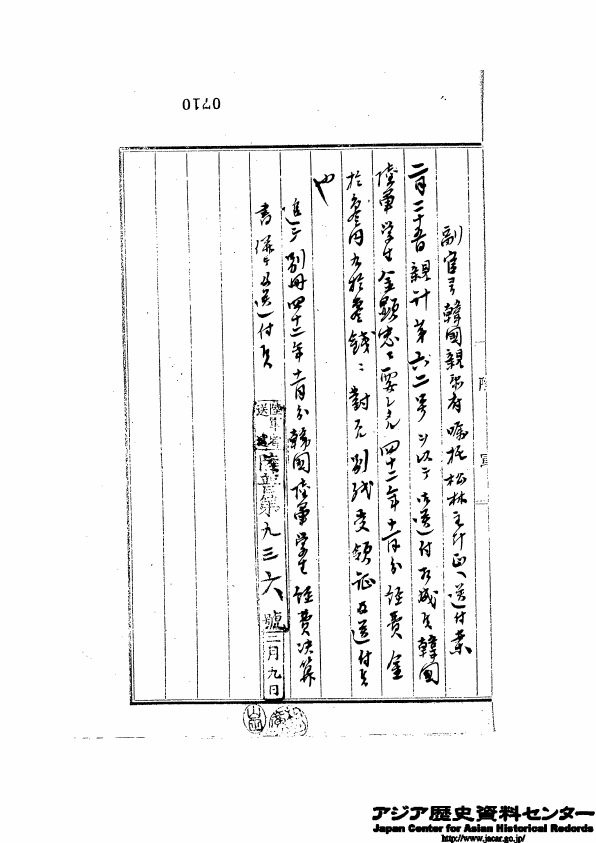 0710
副官ヨリ韓國親衛府嘱托松林主計正ヘ送付案
二月二十五日親計第六二号ヲ以テ御送付相成候韓國
陸軍学生金顕忠ニ要シタル四十二年十二月分経費金
拾参円九拾参銭ニ対スル別紙受領証及送付候
也
追テ別冊四十二年十二月分韓國陸軍学生経費決算
書併テ及送付候
陸軍省
送達
陸普第九三六號
三月九日
陸軍
アジア歴史資料センター
Japan Center for Asian Historical Records
http://www.jacar.go.jp/